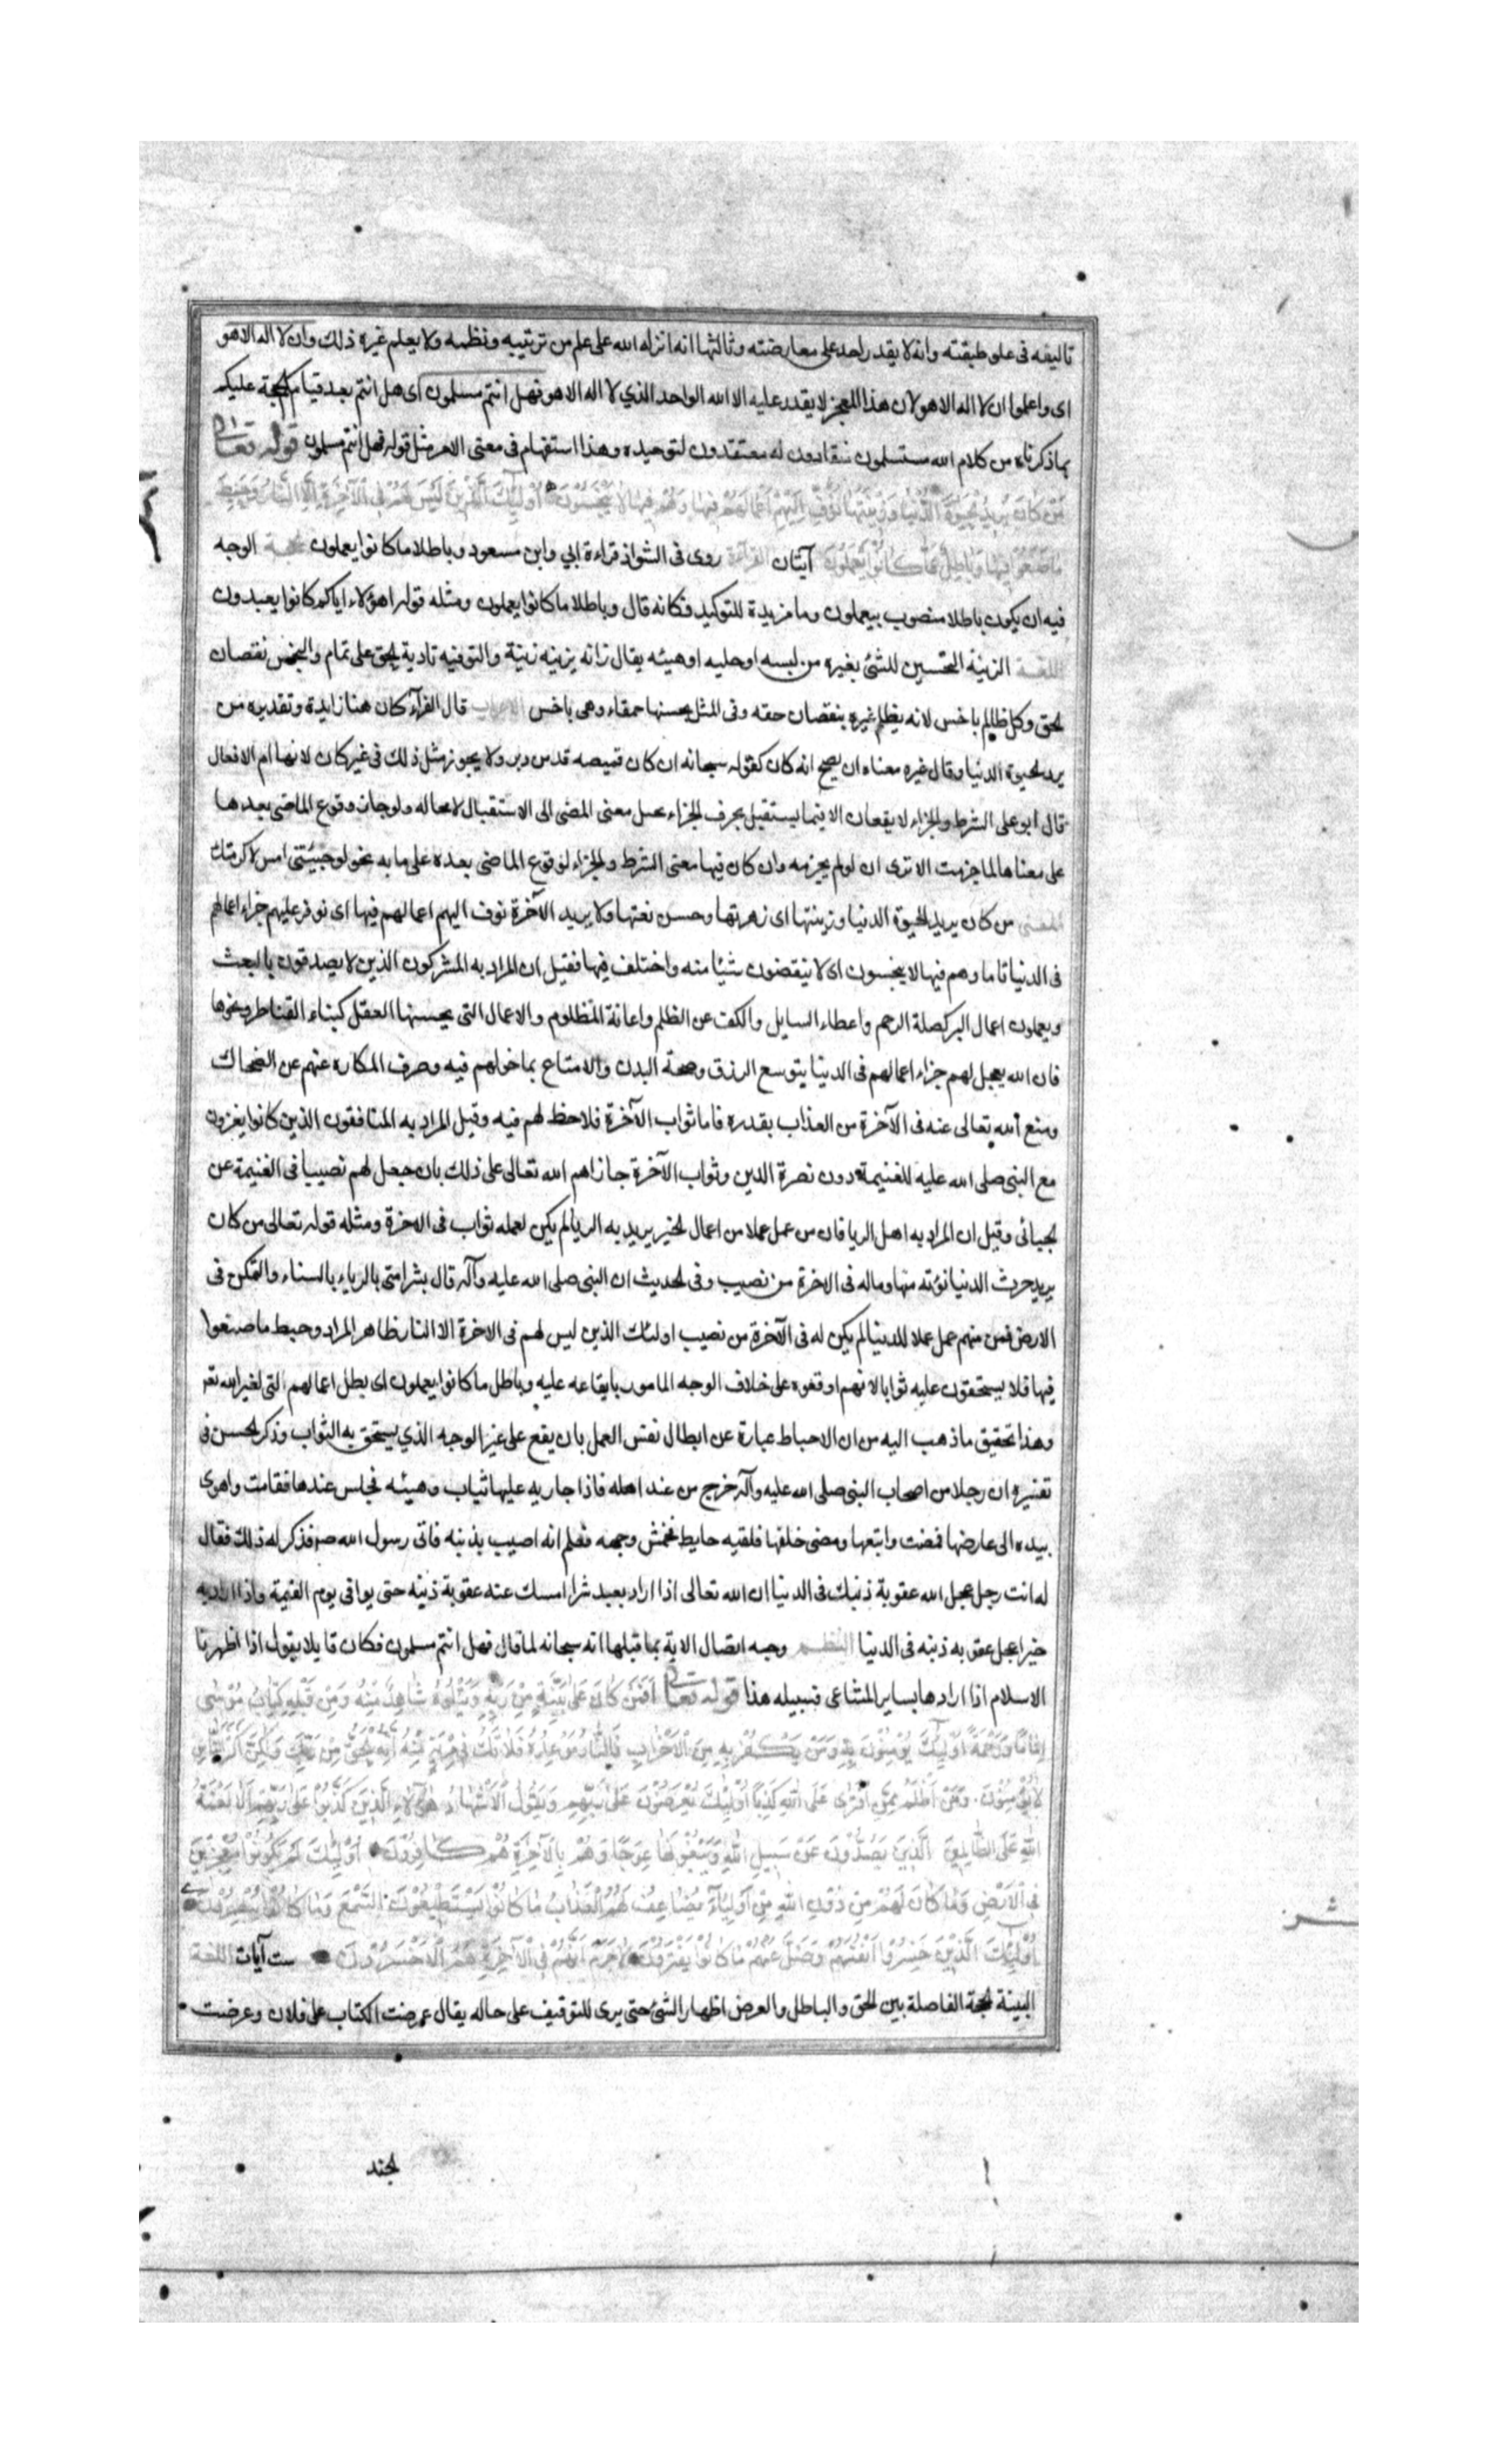 تاليفه فى على طبقته وانه لا يقدر احد على معارضته وثالثها انه انزله الله على علم من ترتيبه ونظمه ولا يعلم غيره ذلك وان لا اله الا هو
اى واعلموا ان لا اله الا هو لان هذا المعجز لا يقدر عليه الا الله الواحد الذي لا اله الا هو فهل انتم مسلمون اى هل انتم بعد قيام الحجة عليكم
بما ذكرناه من كلام الله مستسلمون منقادون له معتقدون لتوحيده وهذا استفهام فى معنى الامر مثل قوله فهل انتم مسلمون قوله تعالى
مَنْ كَانَ يُرِيدُ الْحَيٰوةَ الدُّنْيَا وَزِينَتَهَا نُوَفِّ اِلَيْهِمْ اَعْمَالَهُمْ فِيهَا وَهُمْ فِيهَا لَا يُبْخَسُونَ اُولٰئِكَ الَّذِينَ لَيْسَ لَهُمْ فِى الْاٰخِرَةِ اِلَّا النَّارُ وَحَبِطَ
مَا صَنَعُوا فِيهَا وَبَاطِلٌ مَا كَانُوا يَعْمَلُونَ آيتان القراءة روى فى الشواذ قراءة ابي وابن مسعود وباطلا ما كانوا يعملون الحجة الوجه
فيه ان يكون باطلا منصوب بيعملون وما مزيدة للتوكيد فكانه قال وباطلا ما كانوا يعملون ومثله قوله اهؤلاء اياكم كانوا يعبدون
اللغة الزينة التحسين للشئ بغيره من لبسه او حليه او هيئه يقال زانه يزينه زينة والتوفيه تادية الحق على تمام والبخس نقصان
الحق وكل ظالم باخس لانه يظلم غيره بنقصان حقه وفى المثل يحسبها حمقاء وهى باخس الاعراب قال الفرآء كان هنا زايدة وتقديره من
يرد الحيوة الدنيا وقال غيره معناه ان يصح انه كان كقوله سبحانه ان كان قميصه قد من دبر ولا يجوز مثل ذلك فى غير كان لانها ام الافعال
قال ابو على الشرط والجزاء لا يقعان الا فيما يستقبل بحرف الجزاء محيل معنى المضى الى الاستقبال لا محاله ولو جاز وقوع الماضى بعدها
على معناها لما جزمت الا ترى ان لو لم يجزم به وان كان فيها معنى الشرط والجزاء لوقوع الماضى بعده على ما به نحو لو جئتنى امس لاكرمتك
المعنى من كان يريد الحيوة الدنيا وزينتها اى زهرتها وحسن نعتها ولا يريد الآخرة نوف اليهم اعمالهم فيها اى نوفر عليهم جزاء اعمالهم
فى الدنيا تاما وهم فيها لا يبخسون اى لا ينقصون شيئا منه واختلف فيها فقيل ان المراد به المشركون الذين لا يصدقون بالبعث
ويعملون اعمال البر كصلة الرحم واعطاء السايل والكف عن الظلم واعانة المظلوم والاعمال التى يحسنها العقل كبناء القناطر ونحوها
فان الله يعجل لهم جزاء اعمالهم فى الدنيا بتوسع الرزق وصحة البدن والامتاع بما خولهم فيه وصرف المكاره عنهم عن الضحاك
ومنع الله تعالى عنه فى الآخرة من العذاب بقدره فاما ثواب الآخرة فلا حظ لهم فيه وقيل المراد به المنافقون الذين كانوا يغزون
مع النبى صلى الله عليه للغنيمة دون نصرة الدين وثواب الآخرة جازاهم الله تعالى على ذلك بان جعل لهم نصيبا فى الغنيمة عن
الجبائى وقيل ان المراد به اهل الريا فان من عمل عملا من اعمال الخير يريد به الريا لم يكن لعمله ثواب فى الاخرة ومثله قوله تعالى من كان
يريد حرث الدنيا نؤته منها وماله فى الاخرة من نصيب وفى الحديث ان النبى صلى الله عليه وآله قال بشر امتى بالرياء بالسناء والتمكن فى
الارض فمن منهم عمل عملا للدنيا لم يكن له فى الآخرة من نصيب اولئك الذين ليس لهم فى الاخرة الا النار ظاهر المراد وحبط ما صنعوا
فيها فلا يستحقون عليه ثوابا لانهم اوقعوه على خلاف الوجه المامور بايقاعه عليه وباطل ما كانوا يعملون اى بطل اعمالهم التى لغير الله تعـ
وهذا تحقيق ما ذهب اليه من ان الاحباط عبارة عن ابطال نفس العمل بان يقع على غير الوجه الذي يستحق به الثواب وذكر الحسن فى
تفسيره ان رجلا من اصحاب النبى صلى الله عليه وآله خرج من عند اهله فاذا جاريه عليها ثياب وهيئه فجلس عندها فقامت واهوى
بيده الى عارضها فمضت واتبعها ومضى خلفها فلقيه حايط فخمش وجهه فعلم انه اصيب بذنبه فاتى رسول الله ص فذكر له ذلك فقال
له انت رجل عجل الله عقوبة ذنبك فى الدنيا ان الله تعالى اذا اراد بعبد شرا امسك عنه عقوبة ذنبه حتى يوافى يوم القيمة واذا اراد به
خيرا عجل عقوبه ذنبه فى الدنيا النظم وجه اتصال الاية بما قبلها انه سبحانه لما قال فهل انتم مسلمون فكان قايلا يقول اذا اظهرنا
الاسلام اذا اراد هنا بساير المتاعى فسبيله هذا قوله تعالى اَفَمَنْ كَانَ عَلٰى بَيِّنَةٍ مِنْ رَبِّهِ وَيَتْلُوهُ شَاهِدٌ مِنْهُ وَمِنْ قَبْلِهِ كِتَابُ مُوسٰى
اِمَامًا وَرَحْمَةً اُولٰئِكَ يُؤْمِنُونَ بِهِ وَمَنْ يَكْفُرْ بِهِ مِنَ الْاَحْزَابِ فَالنَّارُ مَوْعِدُهُ فَلَا تَكُ فِى مِرْيَةٍ مِنْهُ اِنَّهُ الْحَقُّ مِنْ رَبِّكَ وَلٰكِنَّ اَكْثَرَ النَّاسِ
لَا يُؤْمِنُونَ وَمَنْ اَظْلَمُ مِمَّنِ افْتَرٰى عَلَى اللهِ كَذِبًا اُولٰئِكَ يُعْرَضُونَ عَلٰى رَبِّهِمْ وَيَقُولُ الْاَشْهَادُ هٰؤُلَاءِ الَّذِينَ كَذَبُوا عَلٰى رَبِّهِمْ اَلَا لَعْنَةُ
اللهِ عَلَى الظَّالِمِينَ الَّذِينَ يَصُدُّونَ عَنْ سَبِيلِ اللهِ وَيَبْغُونَهَا عِوَجًا وَهُمْ بِالْاٰخِرَةِ هُمْ كَافِرُونَ اُولٰئِكَ لَمْ يَكُونُوا مُعْجِزِينَ
فِى الْاَرْضِ وَمَا كَانَ لَهُمْ مِنْ دُونِ اللهِ مِنْ اَوْلِيَآءَ يُضَاعَفُ لَهُمُ الْعَذَابُ مَا كَانُوا يَسْتَطِيعُونَ السَّمْعَ وَمَا كَانُوا يُبْصِرُونَ
اُولٰئِكَ الَّذِينَ خَسِرُوا اَنْفُسَهُمْ وَضَلَّ عَنْهُمْ مَا كَانُوا يَفْتَرُونَ لَا جَرَمَ اَنَّهُمْ فِى الْاٰخِرَةِ هُمُ الْاَخْسَرُونَ ست آيات اللغة
البينة الحجة الفاصلة بين الحق والباطل والعرض اظهار الشئ حتى يرى للتوقيف على حاله يقال عرضت الكتاب على فلان وعرضت
الجند